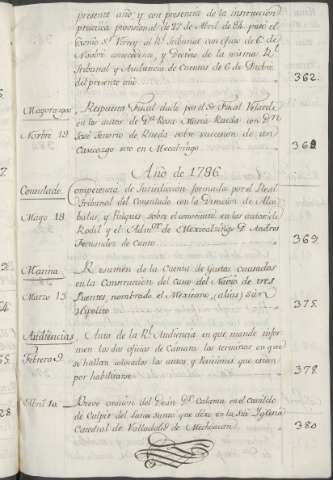 presente año y con presencia de la instruccion
practica provisional de 27 de Abril de 84. pasó el
Exmo Sr. Virrey al Rl. Tribunal con oficio de 6 de
Novbre antecedente, y Decreto de la misma Rl.
Tribunal y Audiencia de Cuentas de 6 de Dicbre
del presente año
362.
Mayorazgos
Novbre 19
Respuesta Fiscal dada por el Sr. Fiscal Velarde
en los autos de Da. Rosa Maria Rueda con Dn.
José Tenorio de Rueda sobre succesion de un
Cacicazgo sito en Mecalzingo
368
Año de 1786
Consulado
Mayo 18
Competencia de Jurisdiccion formada por el Real
Tribunal del Consulado con la Direccion de Alca-
balas, y Pulques sobre el conocimto. en los autos de
Rodil y el Admor. de Mexicalzingo D. Andres
Fernandez de Castro
369.
Marina
Marzo 15
Resumen de la Cuenta de gastos causados
en la Construccion del casco del Navio de tres
Puentes, nombrado el Mexicano, (alias) San
Ypolito
375.
Audiencias
Febrero 9
Auto de la Rl. Audiencia en que manda infor-
men los dos oficios de Camara los terminos en que
se hallan substados los autos, y revisiones que estan
por habilitarse
378.
Breve oracion del Dean Dr. Calama en el Cavildo
de Culpis del Lunes Santo que dixo en la Sta. Iglesia
Catedral de Valladolid de Michoacan
380